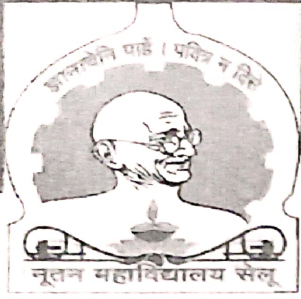 ज्ञानाचेनि पाडें । पवित्र न दिसे
नूतन महाविद्यालय सेलू